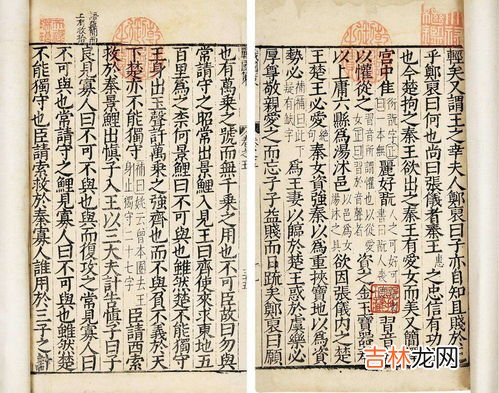 輕矣又謂王之幸夫人鄭褏曰子亦自知且賤於
乎鄭褏曰何也尚曰張儀者秦王惠之忠信有功
也今楚拘之秦王欲出之秦王有愛女而美又簡
宮中佳麗好翫習音
以懽從之資之金玉寶器
以上庸六縣爲湯沐邑欲因張儀內之楚
王楚王必愛秦女資強秦以爲重挾寶地
勢必爲王妻以臨於楚王惑於虞樂必
厚尊敬親愛之而忘子子益賤而日疏矣鄭褏曰願
也有萬乘之號而無千乘之用也不可臣故曰勿與
常請守之昭常出景鯉入見王曰齊使來求東地五
百里爲之柰何景鯉曰不可與也雖然楚不能獨守
王身出玉聲許萬乘之強齊也而不與負不義於天
下楚亦不能獨守臣請西索
救於秦景鯉出愼子入王以三大夫計告愼子曰子
良見寡人曰不可不與也與而復攻之常見寡人曰
不可與也常請守之鯉見寡人曰不可與也雖然楚
不能獨守也臣請索救於秦寡人誰用於三子之計
吉林龙网